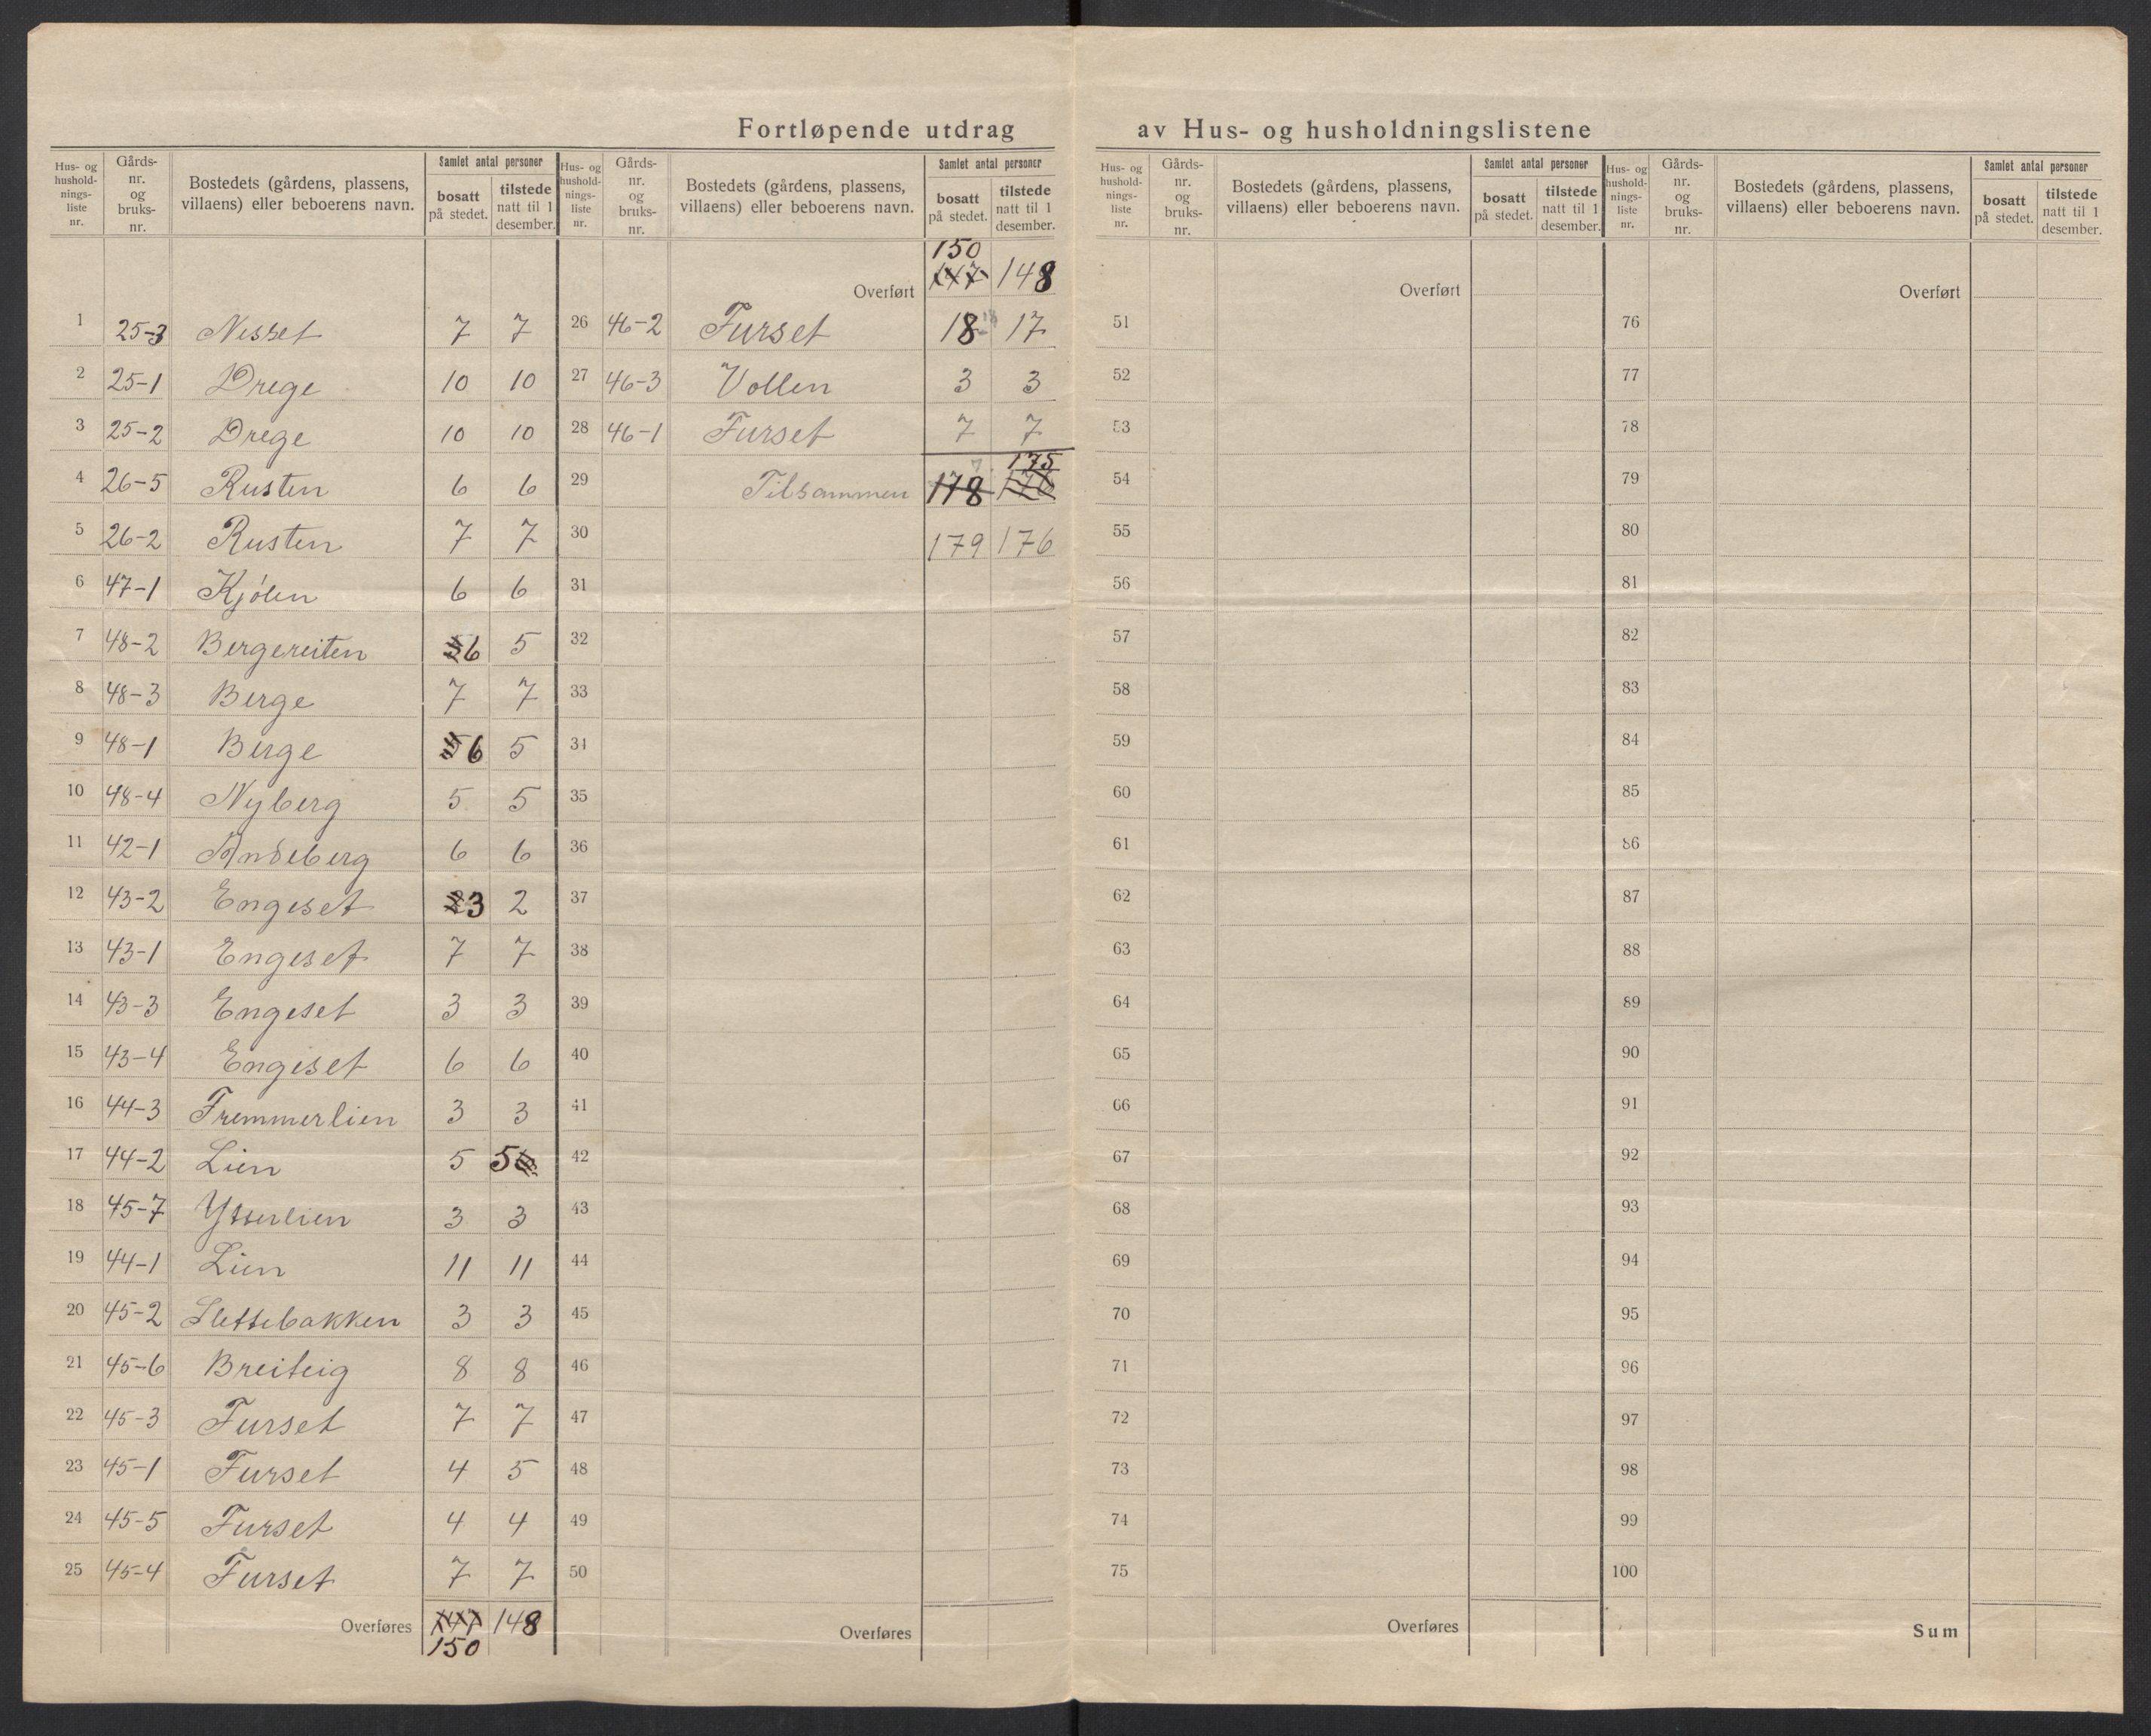 Fortløpende utdrag av Hus- og husholdningslistene
Hus- og husholdnings-liste nr. Gårds-nr. og bruks-nr. Bostedets (gårdens, plassens, villaens) eller beboerens navn. Samlet antal personer bosatt på stedet. tilstede natt til 1 desember.
1 25-3 Nesset 7 7
2 25-1 Drege 10 10
3 25-2 Drege 10 10
4 26-5 Rusten 6 6
5 26-2 Rusten 7 7
6 47-1 Kjølen 6 6
7 48-2 Bergereiten 5 6 5
8 48-3 Berge 7 7
9 48-1 Berge 6 5
10 48-4 Nyberg 5 5
11 42-1 Andeberg 6 6
12 43-2 Engeset 2 3 2
13 43-1 Engeset 7 7
14 43-3 Engeset 3 3
15 43-4 Engeset 6 6
16 44-3 Fremmerlien 3 3
17 44-2 Lien 5 5 6
18 45-7 Ytterlien 3 3
19 44-1 Lien 11 11
20 45-2 Slettebakken 3 3
21 45-6 Breiteig 8 8
22 45-3 Furset 7 7
23 45-1 Furset 4 5
24 45-5 Furset 4 4
25 45-4 Furset 7 7
Overføres 147 148
150
Hus- og husholdnings-liste nr. Gårds-nr. og bruks-nr. Bostedets (gårdens, plassens, villaens) eller beboerens navn. Samlet antal personer bosatt på stedet. tilstede natt til 1 desember.
150
Overført 147 148
26 46-2 Furset 18 17
27 46-3 Vollen 3 3
28 46-1 Furset 7 7
175
29 Tilsammen 178 176
30 179 176
31
32
33
34
35
36
37
38
39
40
41
42
43
44
45
46
47
48
49
50
Overføres
Hus- og husholdnings-liste nr. Gårds-nr. og bruks-nr. Bostedets (gårdens, plassens, villaens) eller beboerens navn. Samlet antal personer bosatt på stedet. tilstede natt til 1 desember.
Overført
51
52
53
54
55
56
57
58
59
60
61
62
63
64
65
66
67
68
69
70
71
72
73
74
75
Overføres
Hus- og husholdnings-liste nr. Gårds-nr. og bruks-nr. Bostedets (gårdens, plassens, villaens) eller beboerens navn. Samlet antal personer bosatt på stedet. tilstede natt til 1 desember.
Overført
76
77
78
79
80
81
82
83
84
85
86
87
88
89
90
91
92
93
94
95
96
97
98
99
100
Sum